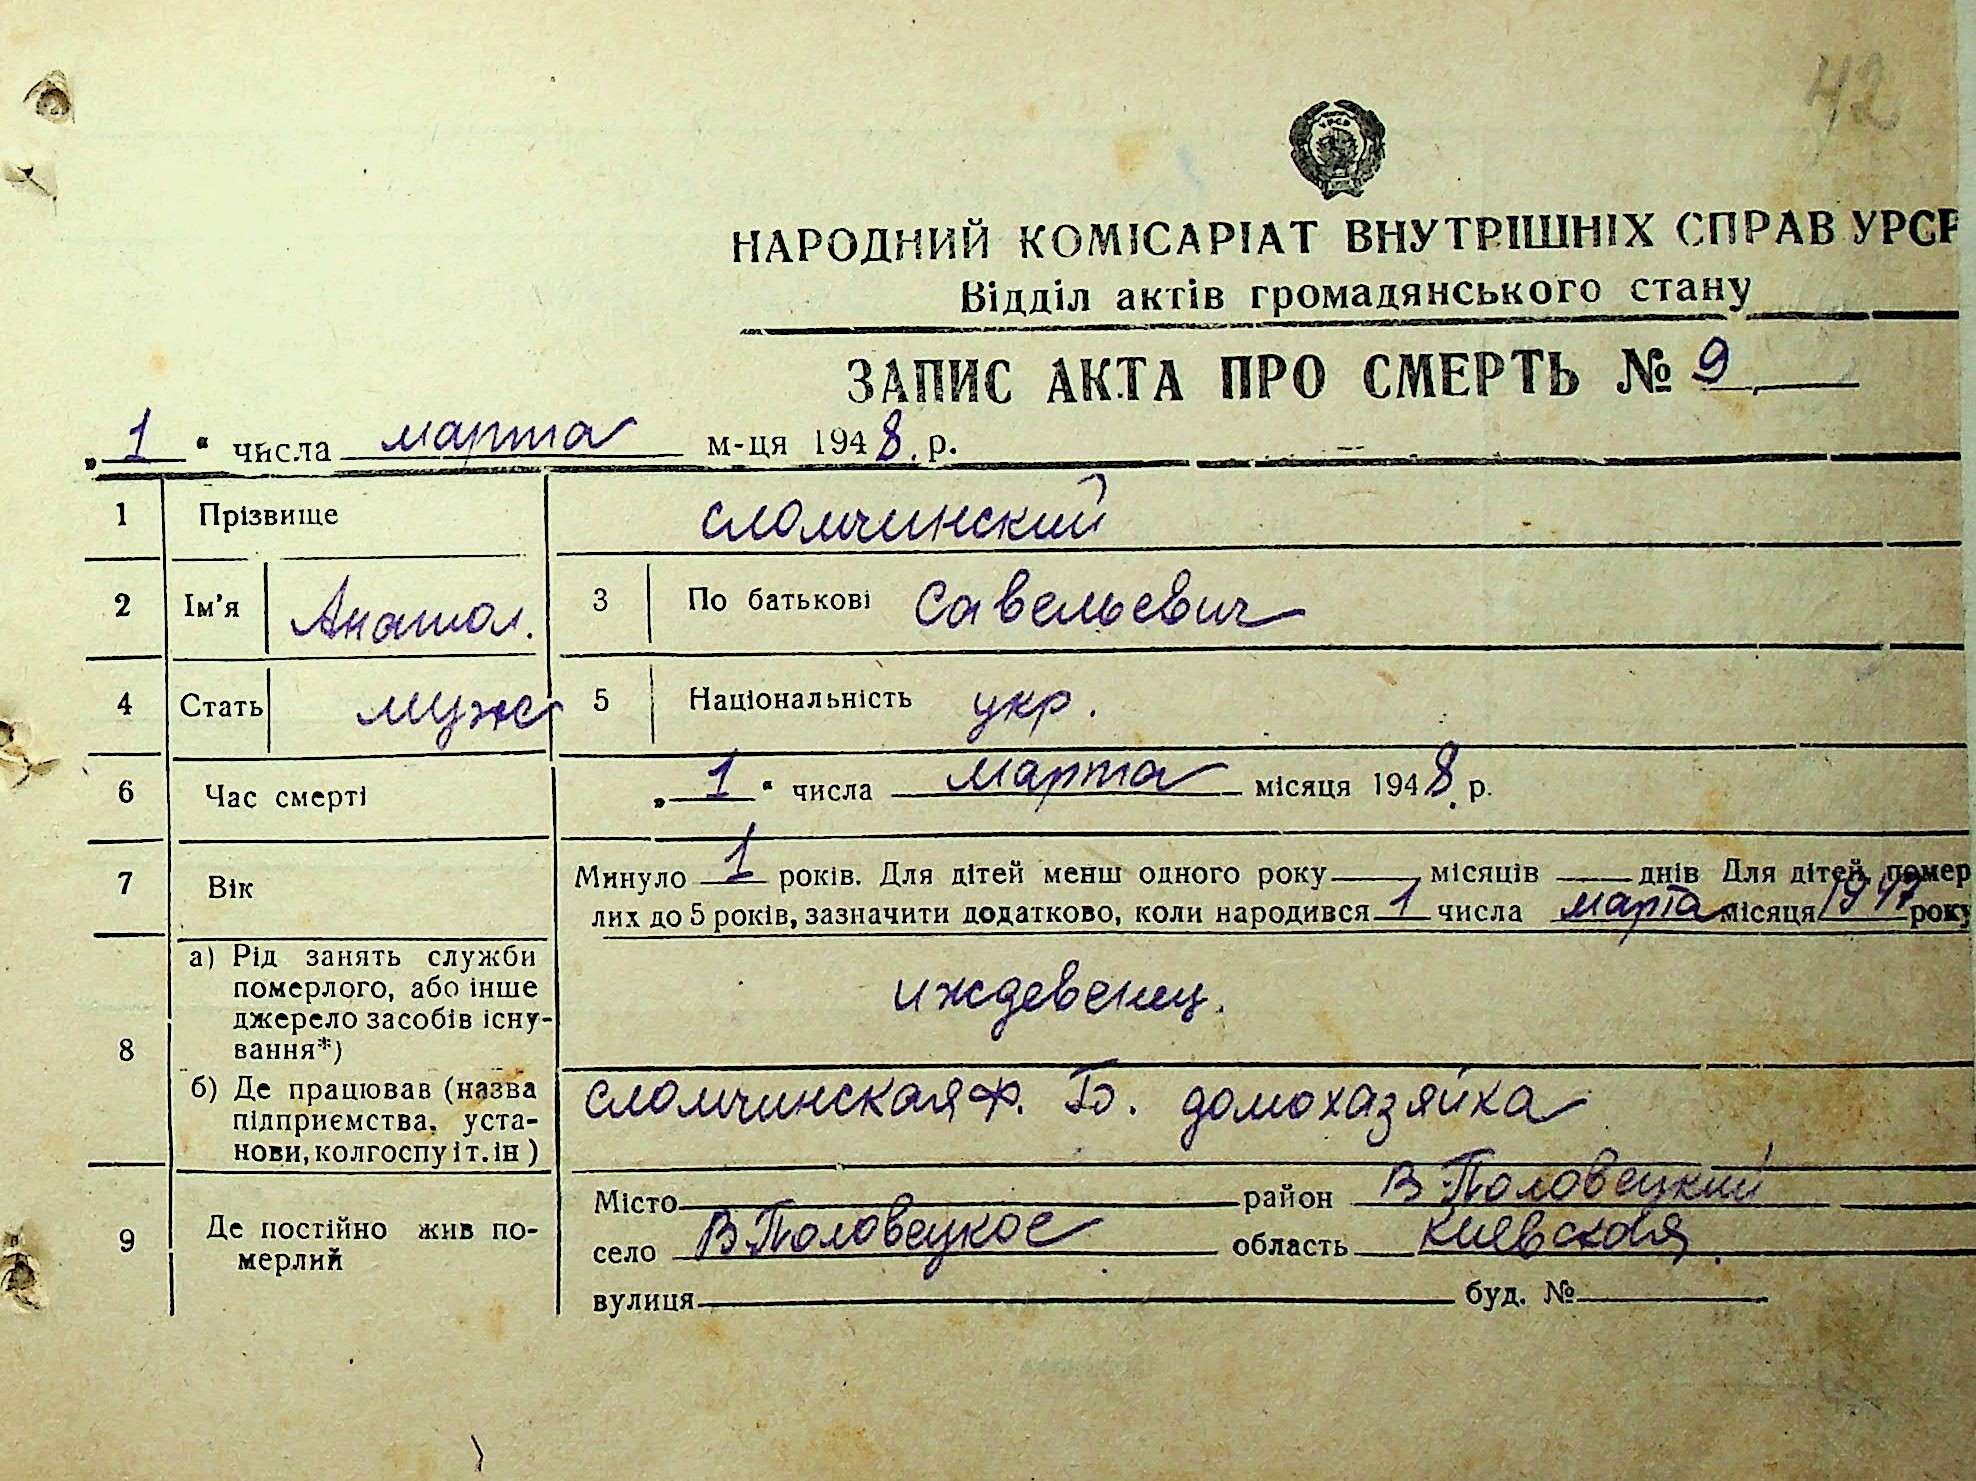 42
УРСР
НАРОДНИЙ КОМІСАРІАТ ВНУТРІШНІХ СПРАВ УРСР
Відділ актів громадянського стану
ЗАПИС АКТА ПРО СМЕРТЬ № 9
„1“ числа марта м-ця 1948. р.
1 Прізвище Сломчинский
2 Ім'я Анатол. 3 По батькові Савельевич
4 Стать муж 5 Національність укр.
6 Час смерті „1“ числа марта місяця 1948. р.
7 Вік Минуло 1 років. Для дітей менш одного року місяців днів Для дітей, помер
лих до 5 років, зазначити додатково, коли народився 1 числа марта місяця 1947 року
8 а) Рід занять служби
померлого, або інше
джерело засобів існу-
вання*)
иждевенец.
б) Де працював (назва
підприємства, уста-
нови, колгоспу і т. ін)
Сломчинская Ф. Б. домохазяйка
9 Де постійно жив по-
мерлий
Місто район В-Половецкий
село В Половецкое область Киевская
вулиця буд. №